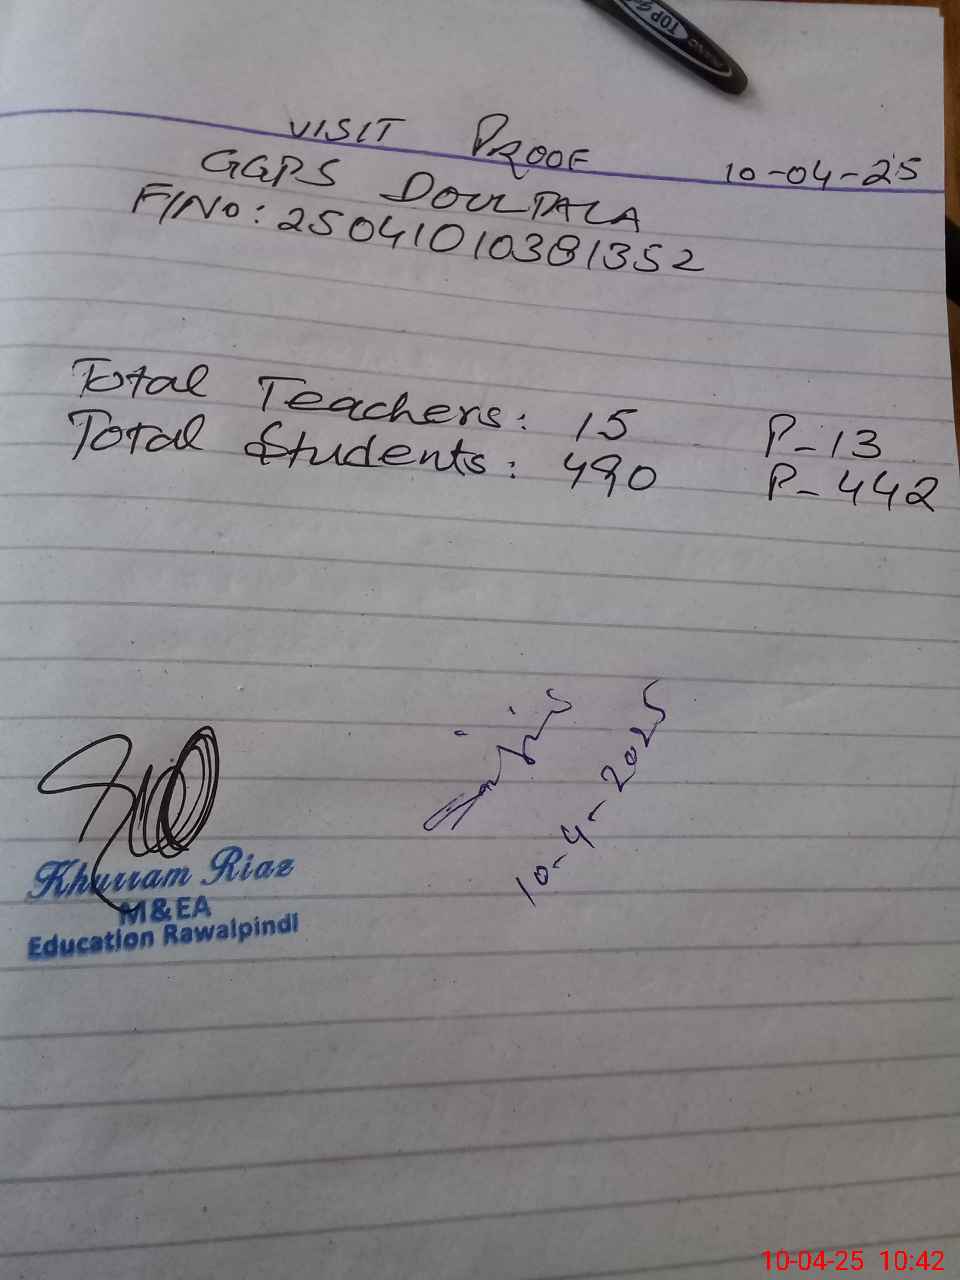 VISIT PROOF 10-04-25
GGPS
F/No: 25041010381352
Total Teachers: 15 P-13
Total Students: 490 P-442
10-4-2025
Khurram Riaz
M&EA
Education Rawalpindi
TOP
10-04-25 10:42